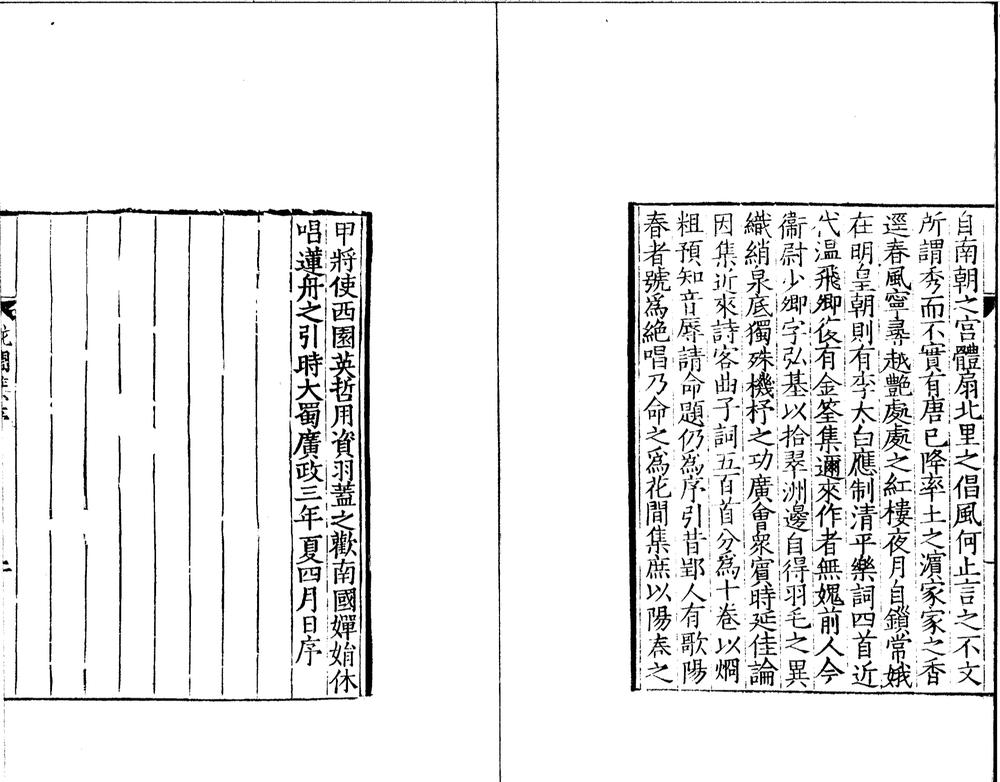 自南朝之宫體扇北里之倡風何止言之不文
所謂秀而不實有唐已降率土之濵家家之香
逕春風寧尋越艷處處之紅樓夜月自鎖常娥
在明皇朝則有李太白應制清平樂詞四首近
代温飛卿復有金筌集邇來作者無媿前人今
衞尉少卿字弘基以拾翠洲邊自得羽毛之異
織綃泉底獨殊機杼之功廣會衆賓時延佳論
因集近來詩客曲子詞五百首分爲十卷以烱
粗預知音辱請命題仍爲序引昔郢人有歌陽
春者號爲絶唱乃命之爲花間集庶以陽春之
甲將使西園英哲用資羽蓋之歡南國嬋娟休
唱蓮舟之引時大蜀廣政三年夏四月日序
花間集序
二